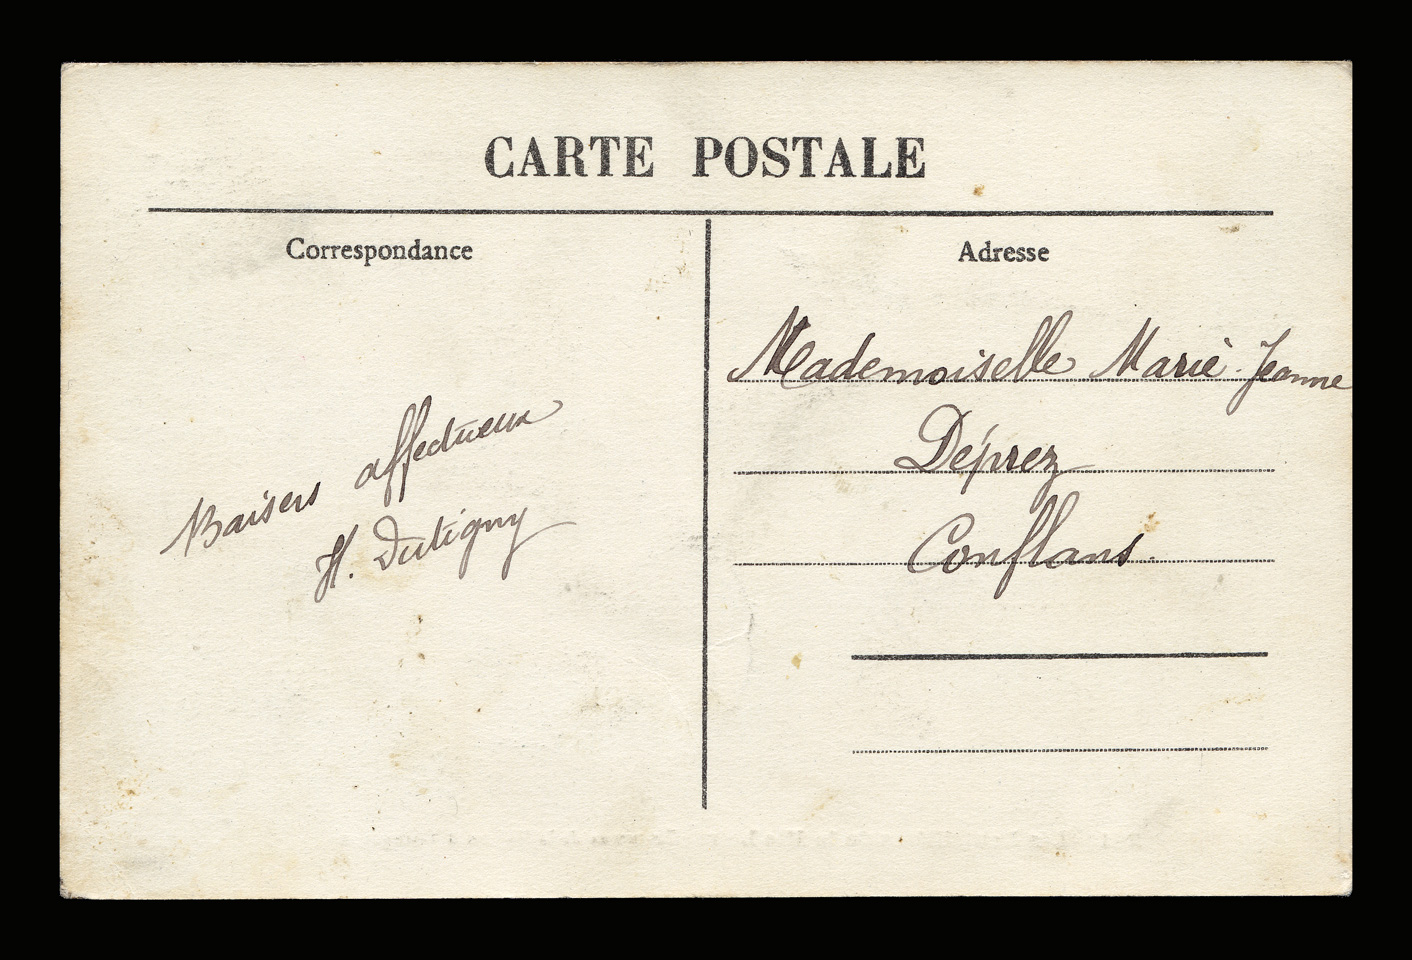 CARTE POSTALE
Correspondance
Adresse
Baisers affectueux
H. Dutigny
Mademoiselle Marie-Jeanne
Déprez
Conflans.